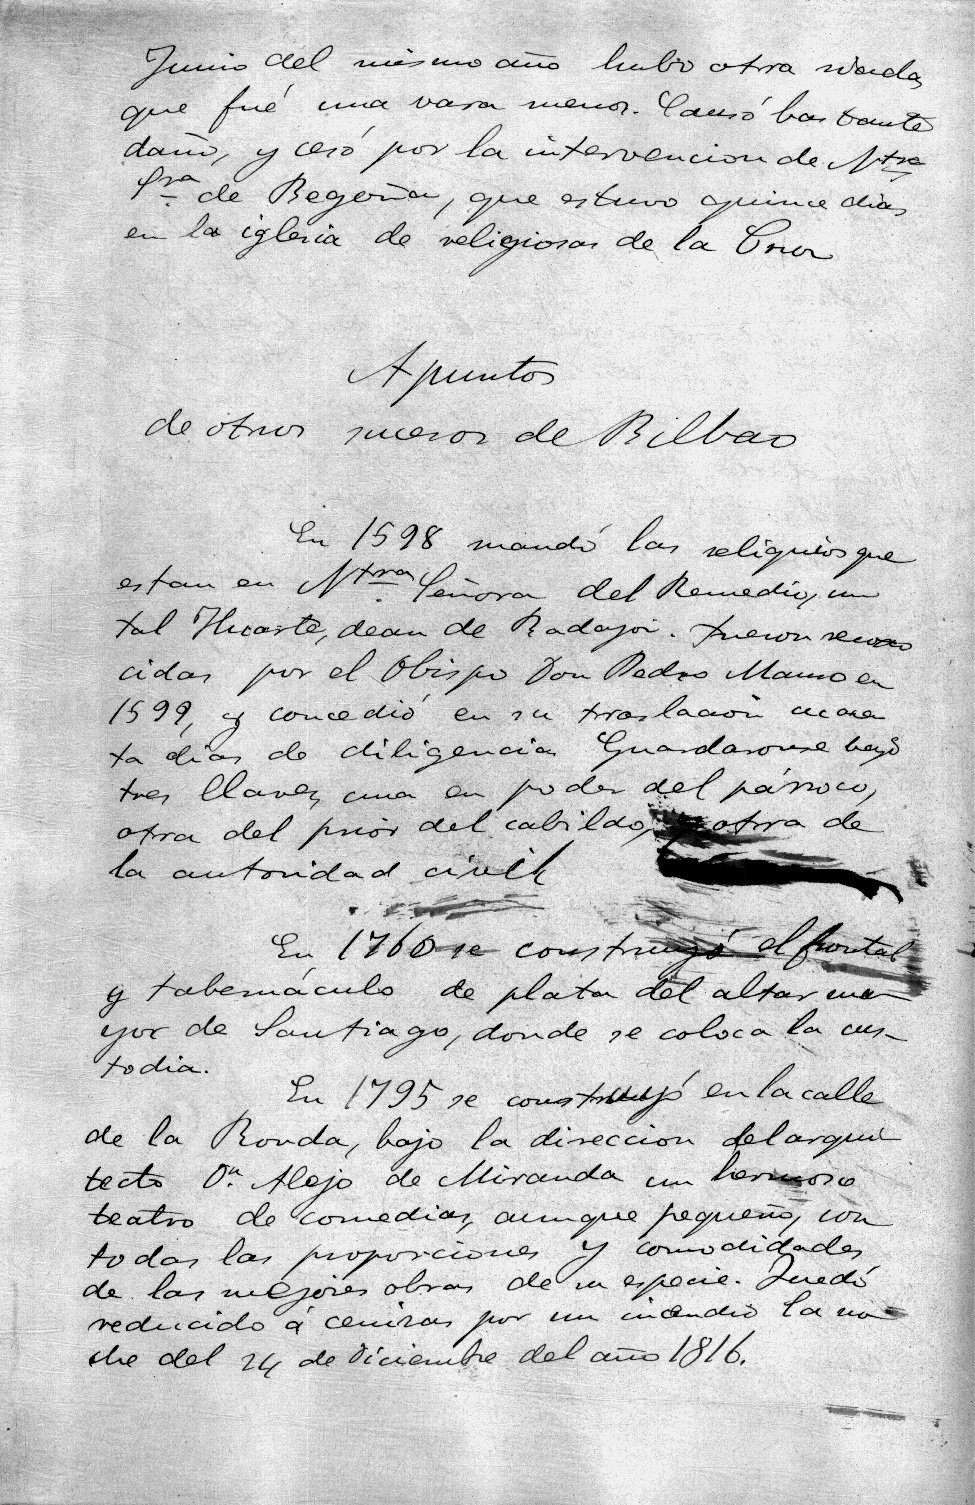 Junio del mismo año hubo otra riada,
que fué una vara menor. Causó bastante
daño, y cesó por la intervencion de Ntra
Sra de Begoña, que estuvo quince dias
en la iglesia de religiosas de la Cruz
Apuntos
de otros sucesos de Bilbao
En 1598 mandó las reliquias que
estan en Ntra Señora del Remedio, un
tal Huarte, dean de Badajoz. Fueron recono
cidas por el Obispo Don Pedro Manso en
1599, y concedió en su traslacion cuaren
ta dias de diligencias Guardaronse bajo
tres llaves, una en poder del párroco,
otra del prior del cabildo, otra de
la autoridad civil
En 1760 se construyó el frontal
y tabernáculo de plata del altar ma-
yor de Santiago, donde se coloca la cus-
todia.
En 1795 se construyó en la calle
de la Ronda, bajo la direccion del arqui
tecto Dn. Alejo de Miranda un hermoso
teatro de comedias, aunque pequeño, con
todas las proporciones y comodidades
de las mejores obras de su especie. Quedó
reducido á cenizas por un incendio la no-
che del 24 de Diciembre del año 1816.